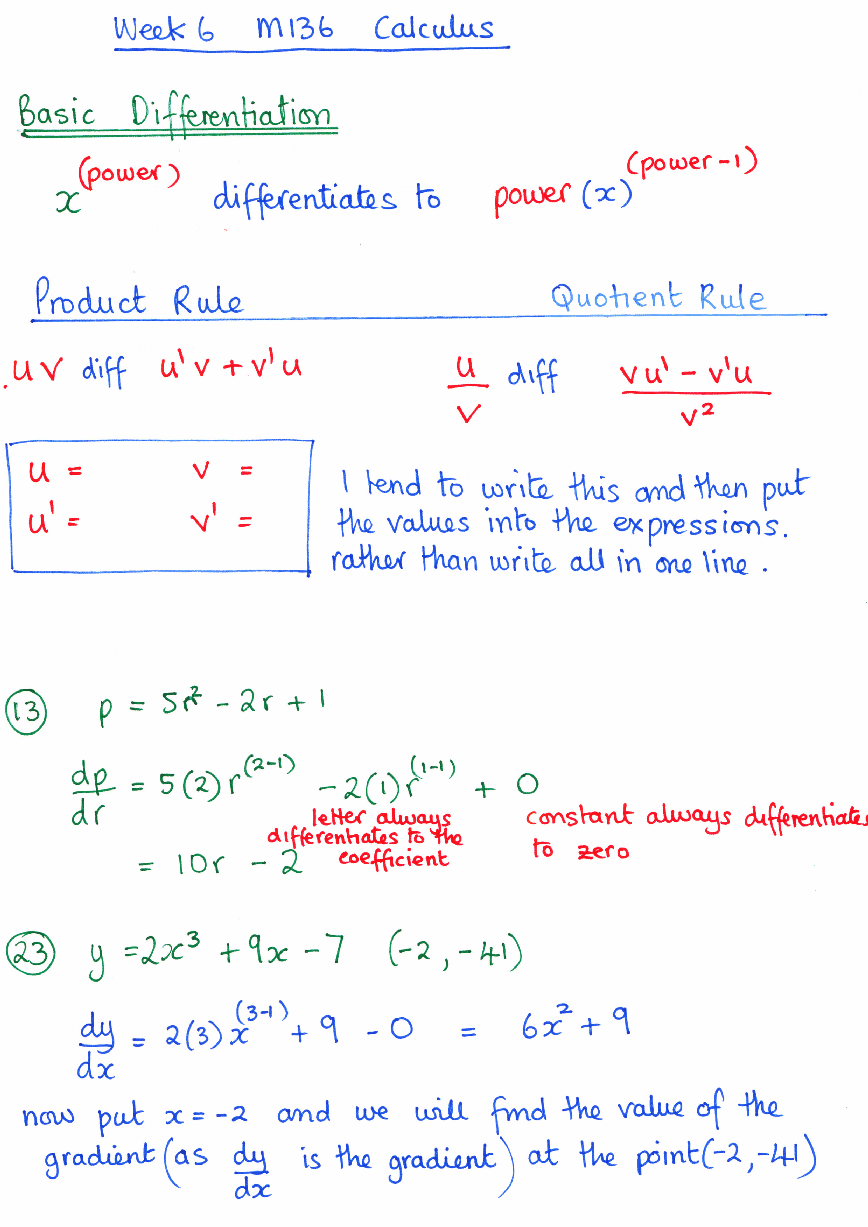 Week 6 M136 Calculus
Basic Differentiation
x^(power) differentiates to power (x)^(power -1)
Product Rule Quotient Rule
uv diff u'v + v'u u/v diff (vu' - v'u)/v²
u = v =
u' = v' =
I tend to write this and then put
the values into the expressions.
rather than write all in one line.
(13) p = 5r² - 2r + 1
dp/dr = 5(2)r^(2-1) - 2(1)r^(1-1) + 0
letter always differentiates to the coefficient
constant always differentiates to zero
= 10r - 2
(23) y = 2x³ + 9x - 7 (-2, -41)
dy/dx = 2(3)x^(3-1) + 9 - 0 = 6x² + 9
now put x = -2 and we will find the value of the
gradient (as dy/dx is the gradient) at the point (-2, -41)